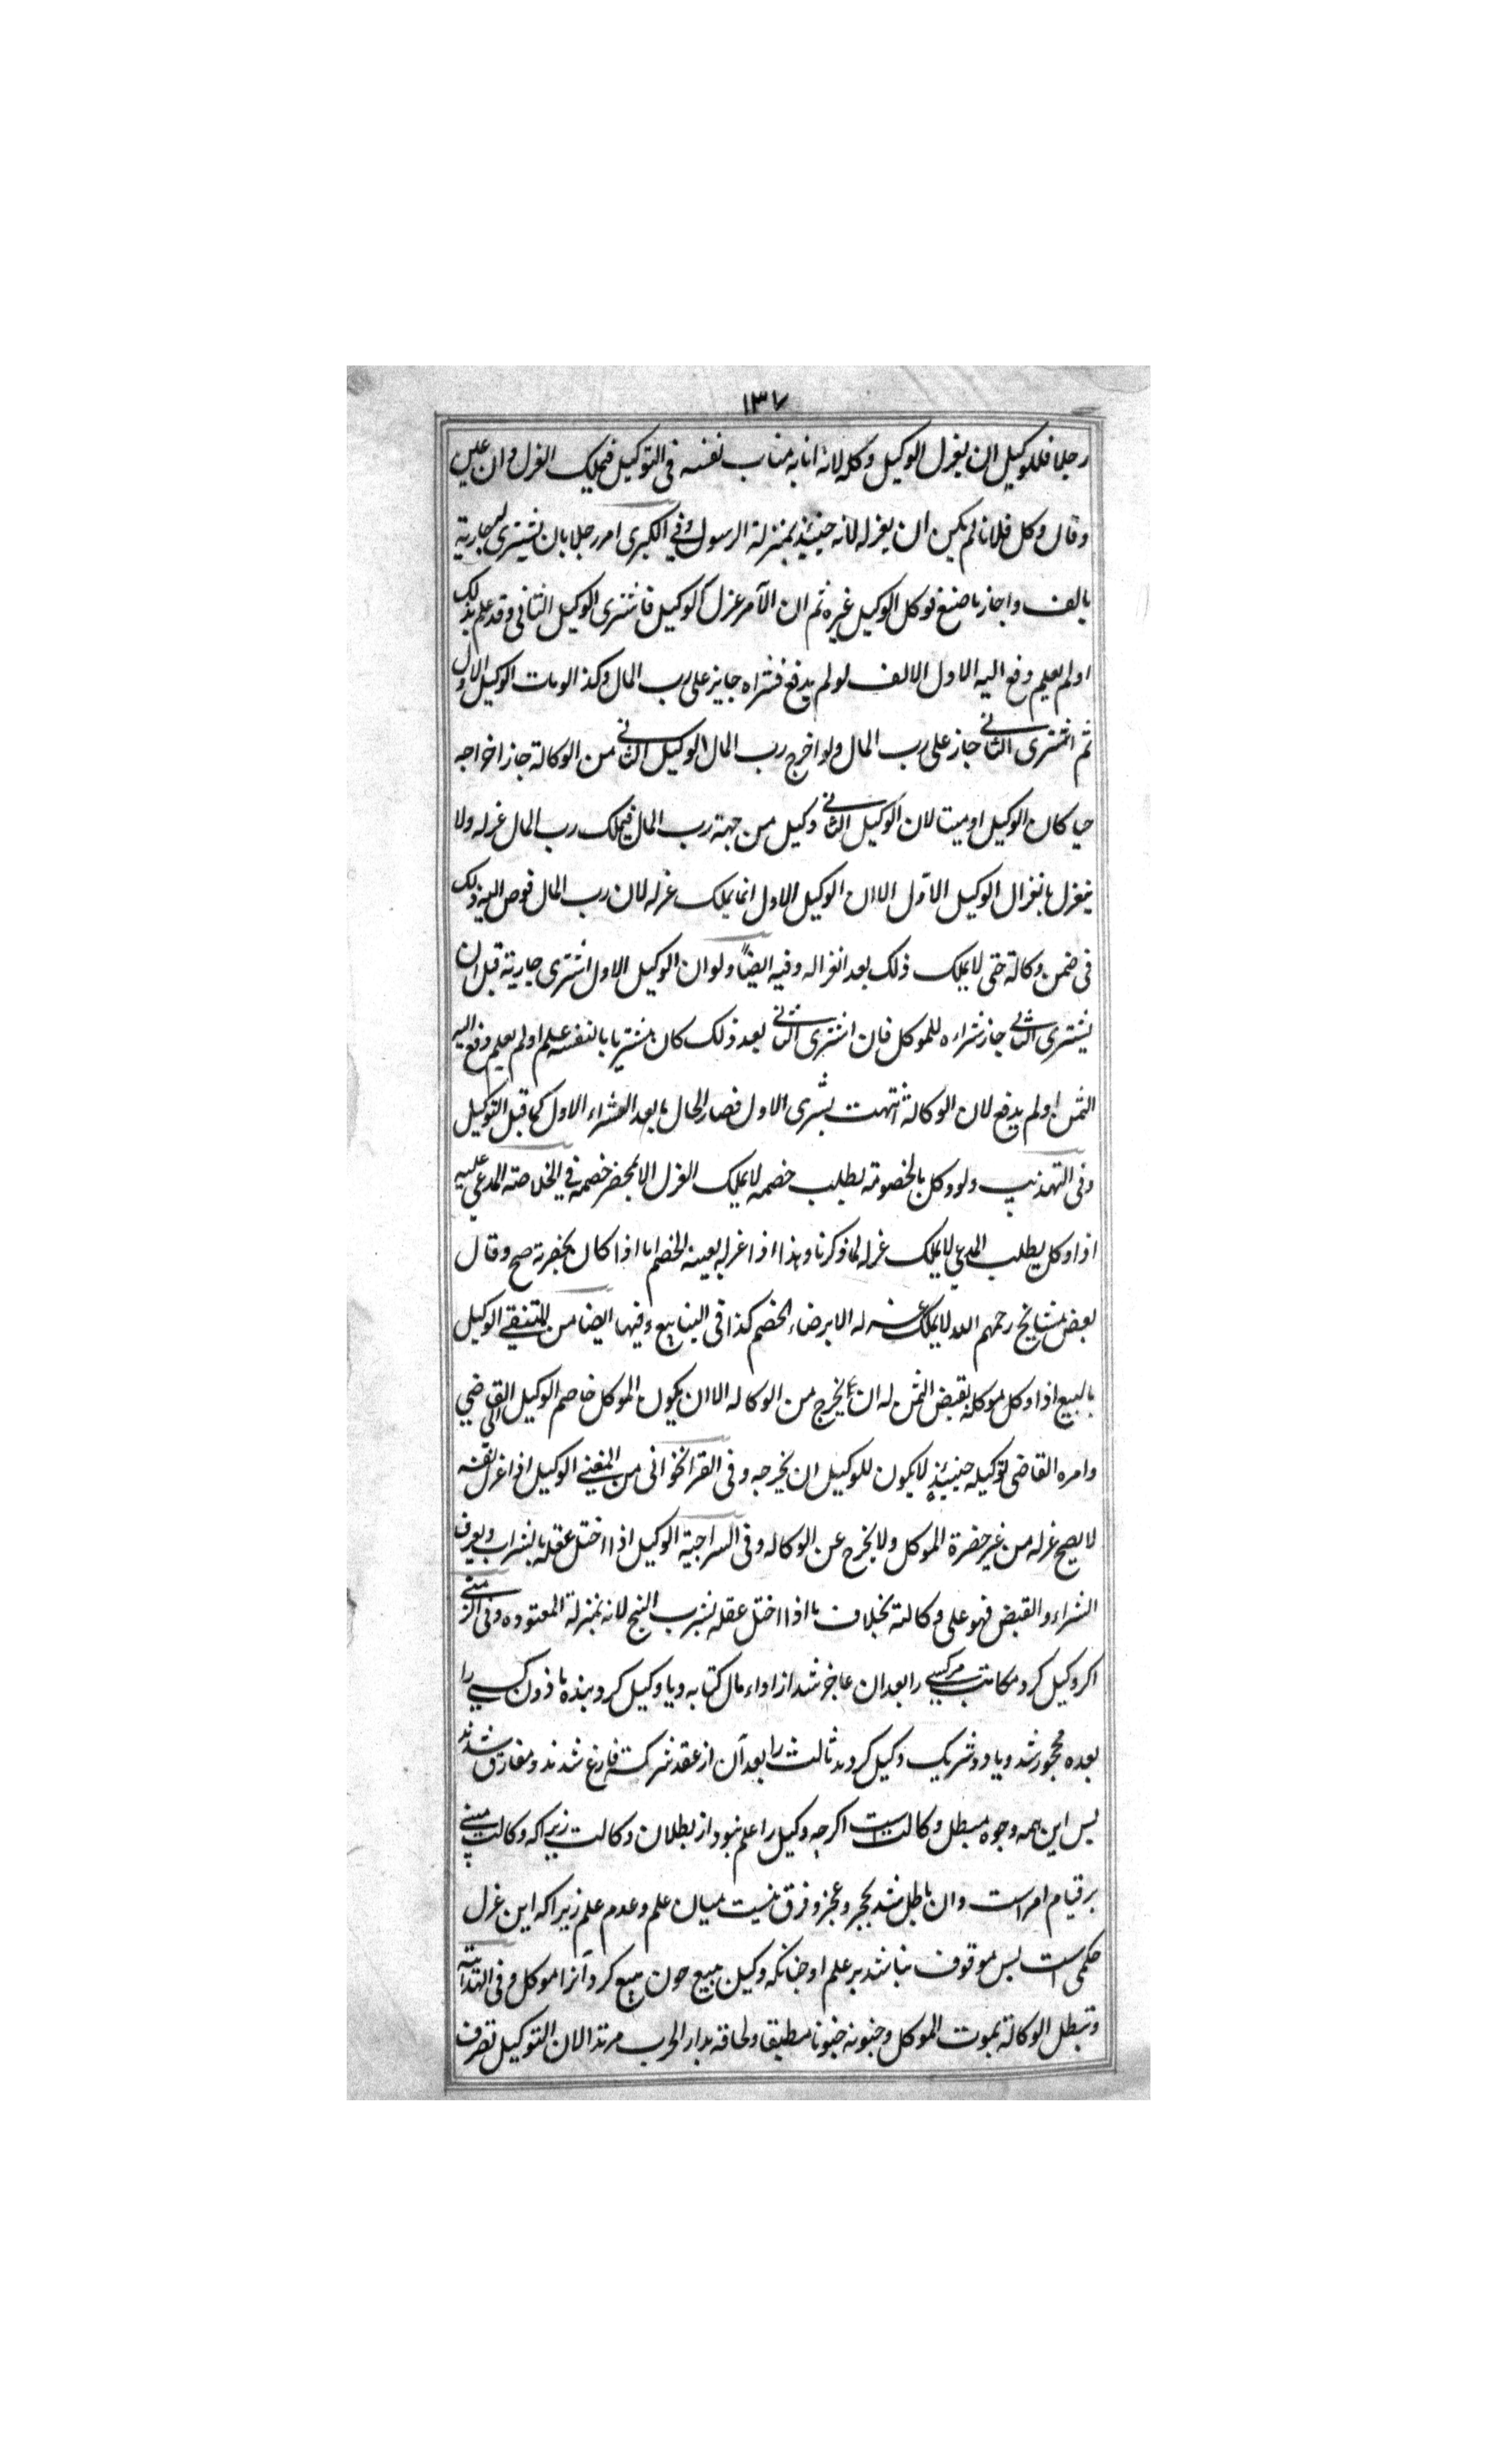 ١٣٧
رجلا فللوكيل ان يعزل الوكيل وكله لانه انابه مناب نفسه فى التوكيل فيملك العزل وان عين
وقال وكل فلانا لم يكن ان يعزله لانه حينئذ بمنزلة الرسول وفي الكبرى امر رجلا بان يشترى له جارية
بالف واجاز ما صنع فوكل الوكيل غيره ثم ان الآمر عزل الوكيل فاشترى الوكيل الثانى وقد علم بذلك
او لم يعلم دفع اليه الاول الالف لو لم يدفع فشراه جايز على رب المال وكذا لو مات الوكيل الاول
ثم اشترى الثانى جاز على رب المال ولو اخرج رب المال الوكيل الثانى من الوكالة جاز اخراجه
حيا كان الوكيل او ميتا لان الوكيل الثانى وكيل من جهة رب المال فيملك رب المال عزله ولا
ينعزل بانعزال الوكيل الاول الا ان الوكيل الاول انما يملك عزله لان رب المال فوض اليه ذلك
فى ضمن وكالة حتى لا يملك ذلك بعد انعزاله وفيه ايضًا ولو ان الوكيل الاول اشترى جارية قبل ان
يشترى الثانى جاز شراءه للموكل فان اشترى الثانى بعد ذلك كان مشتريا لنفسه علم او لم يعلم دفع اليه
الثمن او لم يدفع لان الوكالة انتهت بشرى الاول فصار الحال ما بعد الشراء الاول كما قبل التوكيل
وفى التهذيب ولو وكل بالخصومة بطلب خصمه لا يملك العزل الا بمحضر خصمه فى الخلاصة المدعى عليه
اذا وكل بطلب المدعي لا يملك عزله لما ذكرنا وهذا اذا عزله بغيبة الخصم اما اذا كان بحضرته صح وقال
بعض مشايخ رحمهم الله لا يملك عزله الا برضاء الخصم كذا فى الينابيع وفيها ايضا من المنتقى الوكيل
بالبيع اذا وكل موكله بقبض الثمن له ان يخرج من الوكاله الا ان يكون الموكل خاصم الوكيل الى القاضي
وامره القاضى بتوكيله حينئذٍ لا يكون للوكيل ان يخرجه وفى القراخوانى من المغنى الوكيل اذا عزل نفسه
لا يصح عزله من غير حضرة الموكل ولا يخرج عن الوكاله وفى السراجية الوكيل اذا اختل عقله بشراب ويعرف
الشراء والقبض فهو على وكالته بخلاف ما اذا اختل عقله بشرب البنج لانه بمنزلة المعتوده وفى
اكر وكيل كرد مكاتب مركسى را بعد ان عاجز شد از اداء مال كتابه و يا وكيل كرد بنده ماذون كسى را
بعده محجور شد و يا دو شريك وكيل كردند ثالث را بعد آن از عقد شركت فارغ شدند و مفارق شدند
بس اين همه وجوه مبطل وكالت است اكرچه وكيل را علم نبود از بطلان وكالت زيراكه وكالت مبنى
بر قيام امر است وان باطل شد بحجر و عجز و فرق نيست ميان علم و عدم علم زيراكه اين عزل
حكمى است بس موقوف نباشد بر علم او چنانكه وكيل ببيع چون بيع كرد آنرا موكل وفى الهداية
وتبطل الوكالة بموت الموكل وجنونه جنونا مطبقا ولحاقه بدار الحرب مرتدا لان التوكيل تصرف